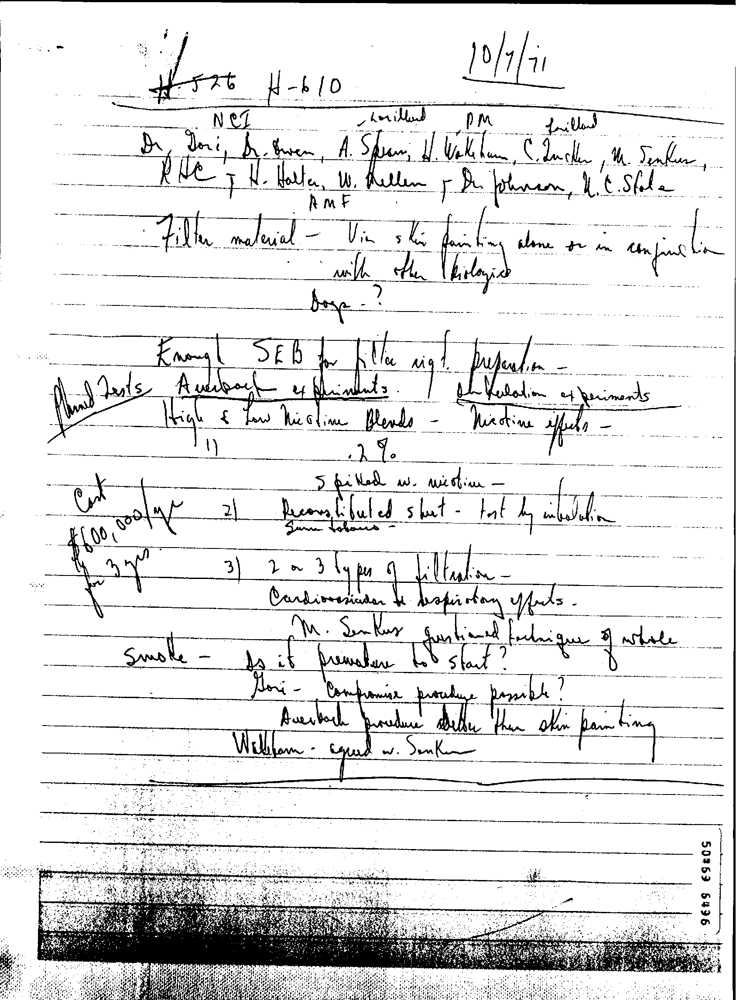 10/7/71
H-526 H-610
NCI Lorillard PM Lorillard
Dr. Gori, Dr. Owen, A. Spears, H. Wakeham, C. Tucker, M. Senkus,
RHC, H. Halter, W. Mellen, Dr. Johnson, N.C. State
AMF
Filter material - Via skin painting alone or in conjunction
with other biologics
Dogs - ?
Enough SEB for filter cigt. preparation -
Planned Tests Auerbach experiments. Inhalation experiments
High & Low Nicotine Blends - Nicotine effects -
1) .2%
Spiked w. nicotine -
Cost
$600,000/yr
for 3 yrs
2) Reconstituted sheet - test by inhalation
Same tobacco -
3) 2 or 3 types of filtration -
Cardiovascular & respiratory effects.
M. Senkus questioned technique of whole
Smoke - Is it premature to start?
Gori - Compromise procedure possible?
Auerbach procedure better than skin painting
Wakeham - agreed w. Senkus
50463 6496